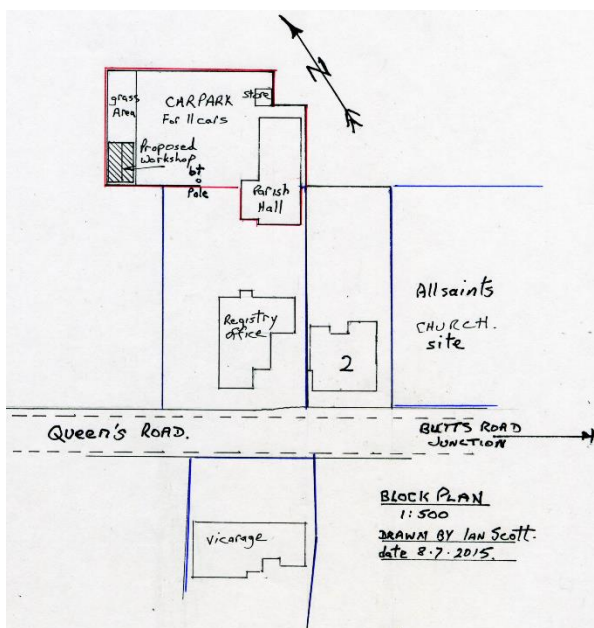 N
grass
Area
CARPARK
For 11 cars
store
Proposed
Workshop
bt
Pole
Parish
Hall
Registry
office
2
All saints
CHURCH.
site
Queen's ROAD.
BUTTS ROAD
JUNCTION
BLOCK PLAN
1:500
DRAWN BY IAN SCOTT.
date 8.7.2015.
Vicarage